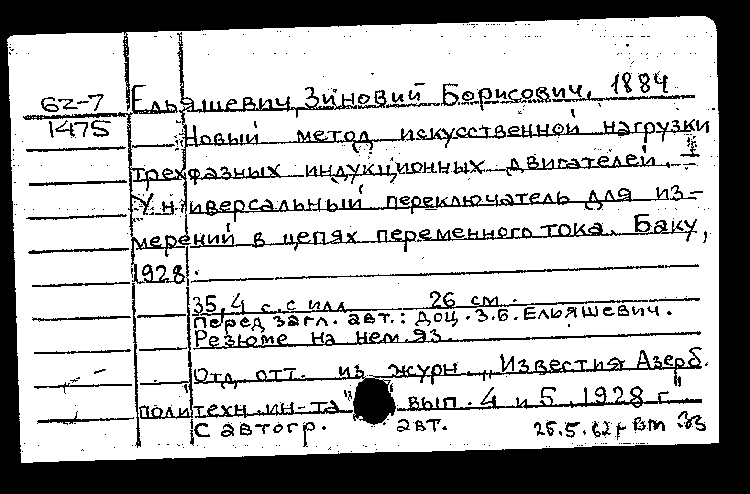 62-7 Ельяшевич, Зиновий Борисович, 1884
1475 Новый метод искусственной нагрузки
трехфазных индукционных двигателей. –
Универсальный переключатель для из-
мерений в цепях переменного тока. Баку,
1928.
35,4 с. с илл 26 см.
Перед загл. авт.: доц. З.Б. Ельяшевич.
Резюме на нем. яз.
Отд. отт. из журн. „Известия Азерб.
политехн. ин-та" вып. 4 и 5. 1928 г"
С автогр. авт. 25.5.62г